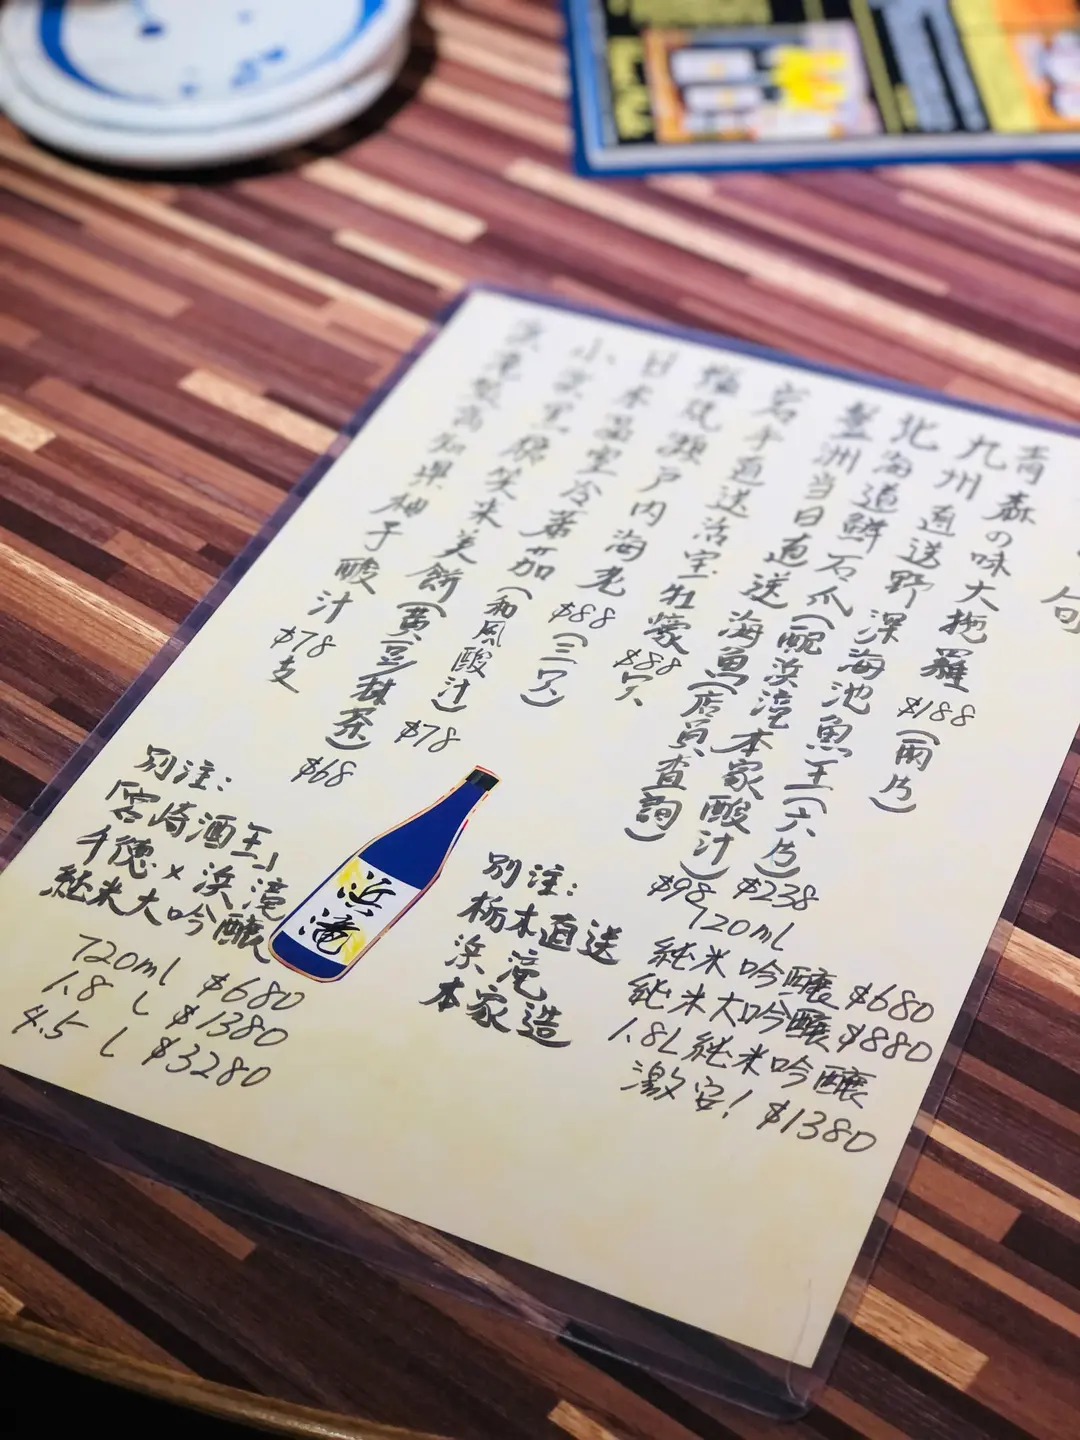 旬
青森の味大拖羅 $188(兩片)
九州直送野深海池魚王(六片) $238
北海道鱘石爪(配浜滝本家酸汁) $98
當日直送海魚(店員查詢)
岩手直送活宝牡蠣 $88
瀬戸内海老
日本温室冷蕃茄(和風酸汁) $78
小京黑糖笑米美餅(黄豆抹茶) $68
高知県柚子酸汁 $78支
$88(三只)
別注:
「宮崎酒王」
千徳×浜滝
純米大吟醸
720ml $680
1.8 L $1380
4.5 L $3280
浜滝
別注:
栃木直送
浜滝
本家造
720ml
純米吟醸 $680
純米大吟醸 $880
1.8L純米吟醸
激安! $1380